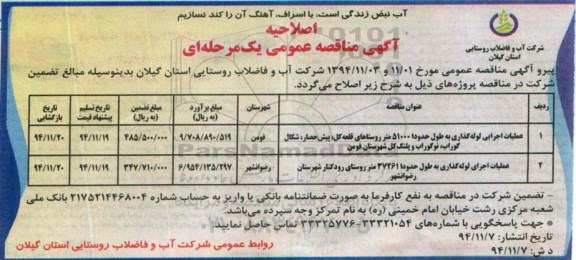 آب نبض زندگی است، با اسراف، آهنگ آن را کند نسازیم
اصلاحیه
آگهی مناقصه عمومی یک‌مرحله‌ای
شرکت آب و فاضلاب روستایی
استان گیلان
پیرو آگهی مناقصه عمومی مورخ ۱۱/۰۱ و ۱۳۹۴/۱۱/۰۳ شرکت آب و فاضلاب روستایی استان گیلان بدینوسیله مبالغ تضمین
شرکت در مناقصه پروژه‌های ذیل به شرح زیر اصلاح می‌گردد.
ردیف عنوان مناقصه شهرستان مبلغ برآورد (به ریال) مبلغ تضمین (به ریال) تاریخ تسلیم پیشنهاد قیمت تاریخ بازگشایی
۱ عملیات اجرایی لوله‌گذاری به طول حدودا ۵۱۰۰۰ متر روستاهای قلعه‌کل، پیش‌حصار، شکال گوراب، نوگوراب و پلنگ‌کل شهرستان فومن فومن ۹/۷۰۸/۸۹۰/۵۱۹ ۴۸۵/۵۰۰/۰۰۰ ۹۴/۱۱/۱۹ ۹۴/۱۱/۲۰
۲ عملیات اجرای لوله‌گذاری به طول حدودا ۳۷۲۶۱ متر روستای رودکنار شهرستان رضوانشهر رضوانشهر ۶/۹۵۴/۱۳۵/۲۹۷ ۳۴۷/۷۱۰/۰۰۰ ۹۴/۱۱/۱۹ ۹۴/۱۱/۲۰
- تضمین شرکت در مناقصه به نفع کارفرما به صورت ضمانتنامه بانکی یا واریز به حساب شماره ۲۱۷۵۲۱۴۴۶۸۰۰۴ بانک ملی
شعبه مرکزی رشت خیابان امام خمینی (ره) به نام تمرکز وجه سپرده می‌باشد.
جهت پاسخگویی با شماره‌های ۳۳۳۲۱۰۵۴-۳۳۳۲۵۷۷۶ تماس حاصل نمایید.
تاریخ انتشار: ۹۴/۱۱/۷
د ش: ۹۴/۱۱/۷
روابط عمومی شرکت آب و فاضلاب روستایی استان گیلان